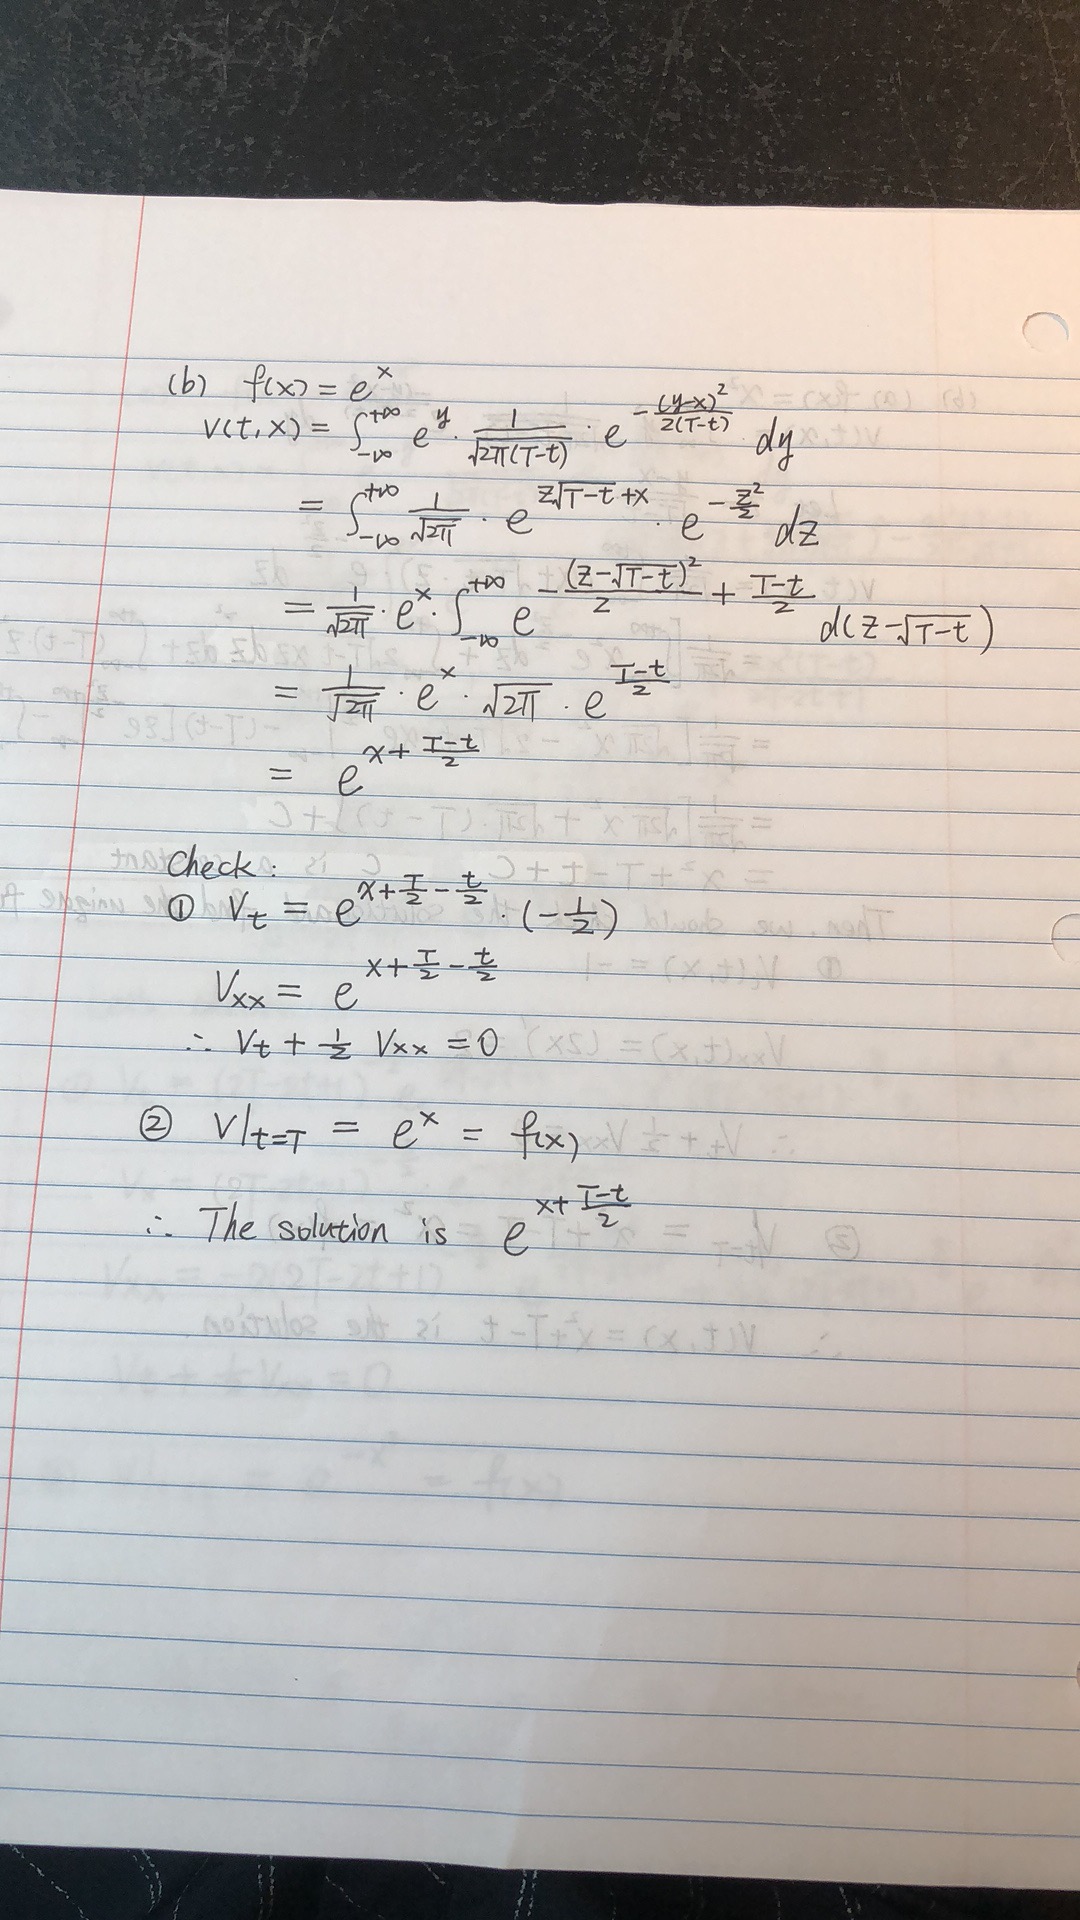 (b) f(x) = e^x
V(t,x) = ∫_{-∞}^{+∞} e^y · 1/√(2π(T-t)) · e^{-(y-x)²/2(T-t)} dy
= ∫_{-∞}^{+∞} 1/√(2π) · e^{z√(T-t)+x} · e^{-z²/2} dz
= 1/√(2π) · e^x · ∫_{-∞}^{+∞} e^{-(z-√(T-t))²/2 + (T-t)/2} d(z-√(T-t))
= 1/√(2π) · e^x · √(2π) · e^{(T-t)/2}
= e^{x+(T-t)/2}
Check:
① V_t = e^{x+T/2-t/2} · (-1/2)
V_xx = e^{x+T/2-t/2}
∴ V_t + 1/2 V_xx = 0
② V|_{t=T} = e^x = f(x)
∴ The solution is e^{x+(T-t)/2}